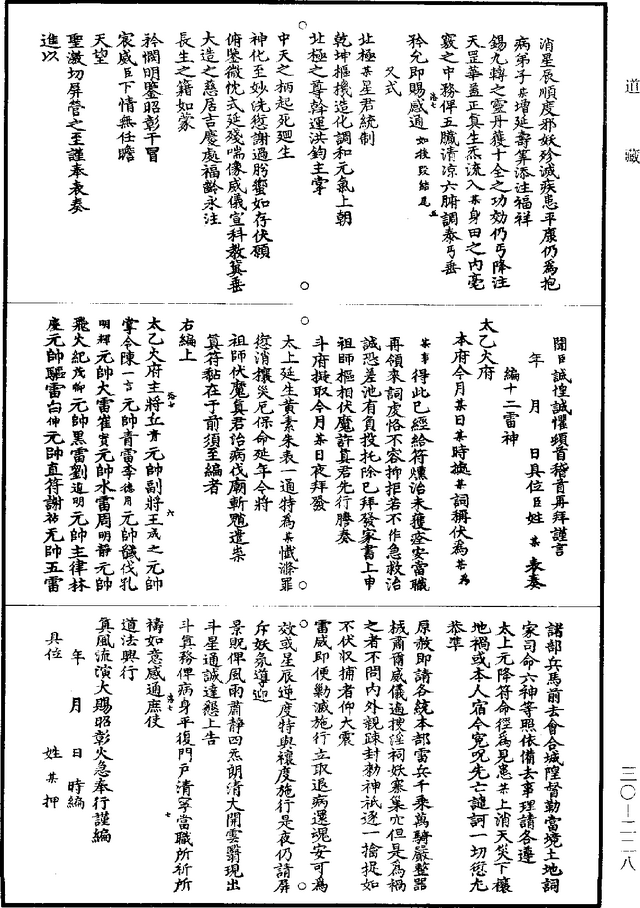 道藏
消星辰順度邪妖殄滅疾患平康仍為抱
病弟子某增延壽筭添注福祥
錫九轉之靈丹獲十全之功効仍丐降注
天罡華蓋正真生炁流入某身田之内毫
竅之中務俾五臟清凉六腑調泰丐垂
矜允即賜感通如投段結尾
又式
北極某星君統制
乾坤樞機造化調和元氣上朝
北極之尊斡運洪鈞主掌
中天之柄起死廻生
神化至妙洗愆謝過肹蠁如存伏願
俯鑒微忱式延殘喘像威儀宣科教冀垂
大造之慈居吉慶處福齡永注
長生之籍如蒙
矜憫明鑒昭彰干冒
宸威臣下情無任瞻
天望
聖激切屏營之至謹奉表奏
進以
聞臣誠惶誠懼頓首稽首再拜謹言
年月日具位臣姓某表奏
編十二雷神
太乙火府
本府今月某日某時據某詞稱伏為某為
某事得此已經給符燻治未獲痊安當職
再領來詞虔恪不容抑拒若不作急救治
誠恐差池有負投托除已拜發家書上申
祖師樞相伏魔許真君先行謄奏
斗府擬取今月某日夜拜發
太上延生黄素朱表一通特為某懺滌罪
愆消禳災厄保命延年令將
祖師伏魔真君治病伐廟斬䰡遣祟
眞符黏在于前須至編者
右編上
太乙火府主將丘青元帥副將王成之元帥
掌令陳一言元帥青雷李德周元帥馘伐孔
明輝元帥大雷崔賓元帥水雷周明靜元帥
飛火紀茂卿元帥黑雷劉道明元帥主律林
產元帥驅雷白伸元帥直符謝祐元帥五雷
諸部兵馬前去會合城隍督勒當境土地祠
家司命六神等照依備去事理請各遵
太上元降符命徑為見患某上消天災下禳
地禍或本人宿今寃咒先亡譴訶一切愆尤
恭凖
原赦即請各統本部雷兵千乘萬騎嚴整器
械肅爾威儀遍搜淫祠妖寨巢穴但是為禍
之者不問内外親疎封勑神祇逐一擒捉如
不伏收捕者仰大震
雷威即便勦滅施行立取退病還魂安可為
効或星辰逆度特與禳度施行是夜仍請屏
斥妖氛導迎
景貺俾風雨蕭静四炁朗清大開雲翳現出
斗星通誠達懇上告
斗真務俾病身平復門戶清寧當職所祈所
禱如意感通庶使
道法興行
眞風流演大賜昭彰火急奉行謹編
年月日時編
具位姓某押
三〇—二二八